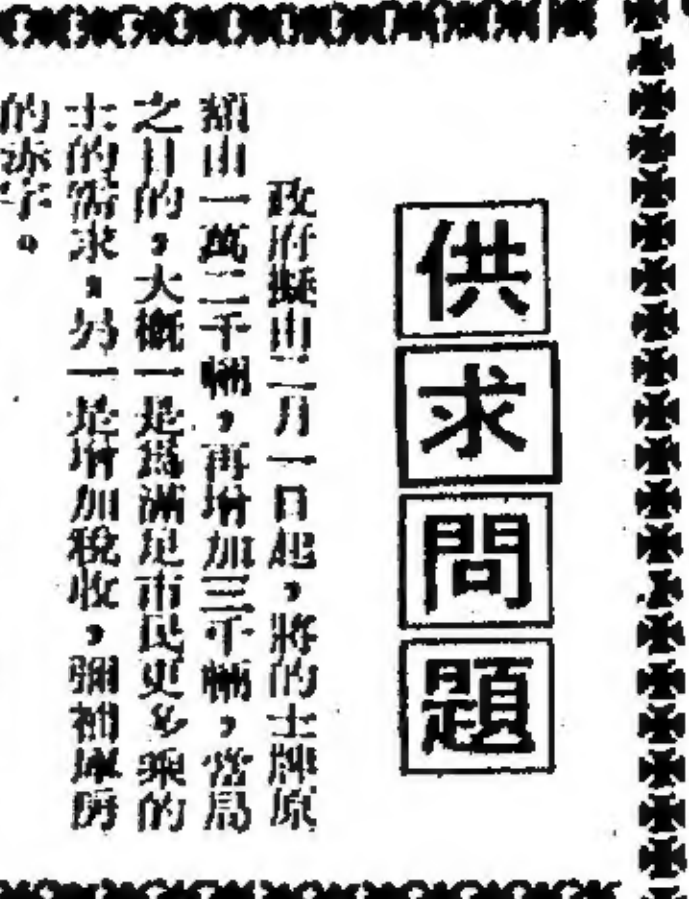 供求問題
政府擬由二月一日起，將的士牌原
額由一萬二千輛，再增加三千輛，當局
之目的，大概一是爲滿足市民更多乘的
士的需求，另一是增加稅收，彌補庫房
的赤字。